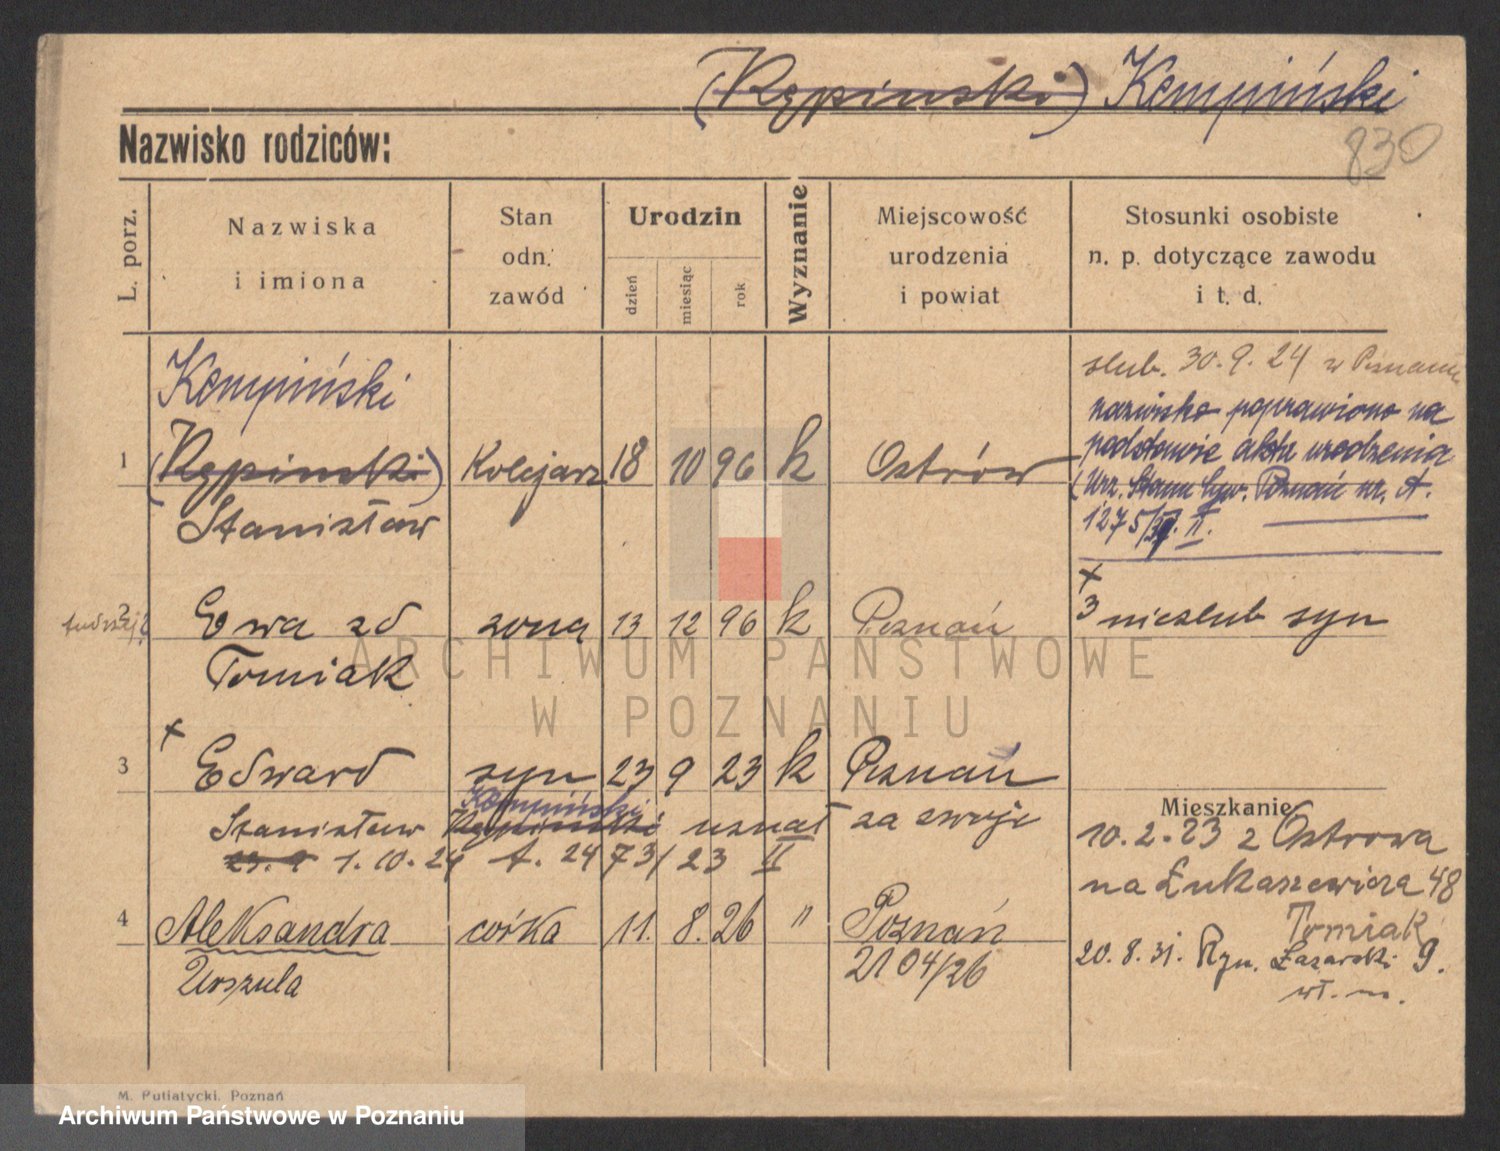 (Kępiński) Kempiński
830
Nazwisko rodziców:
L. porz.
Nazwiska
i imiona
Stan
odn.
zawód
Urodzin
dzień
miesiąc
rok
Wyznanie
Miejscowość
urodzenia
i powiat
Stosunki osobiste
n. p. dotyczące zawodu
i t. d.
Kempiński
1 (Kępiński) Kolejarz 18 10 96 k Ostrów
Stanisław
ślub. 30.9.24 w Poznaniu
nazwisko poprawiono na
podstawie aktu urodzenia
(Urz. Stanu Cyw. Poznań nr. A.
1275/ II.
2 Ewa zd żona 13 12 96 k Poznań
Tomiak
x
3 nieślub syn
x
3 Edward syn 23 9 23 k Poznań
Kempiński
Stanisław Kępiński uznał za swoje
23.9 1.10.24 A. 2473/23 II
4 Aleksandra córka 11. 8. 26 " Poznań
Urszula 2104/26
Mieszkanie
10.2.23 z Ostrowa
na Łukaszewicza 48
Tomiak
20.8.31. Ryn. Łazarski 9.
wł. m.
ARCHIWUM PAŃSTWOWE
W POZNANIU
M. Putiatycki, Poznań
Archiwum Państwowe w Poznaniu